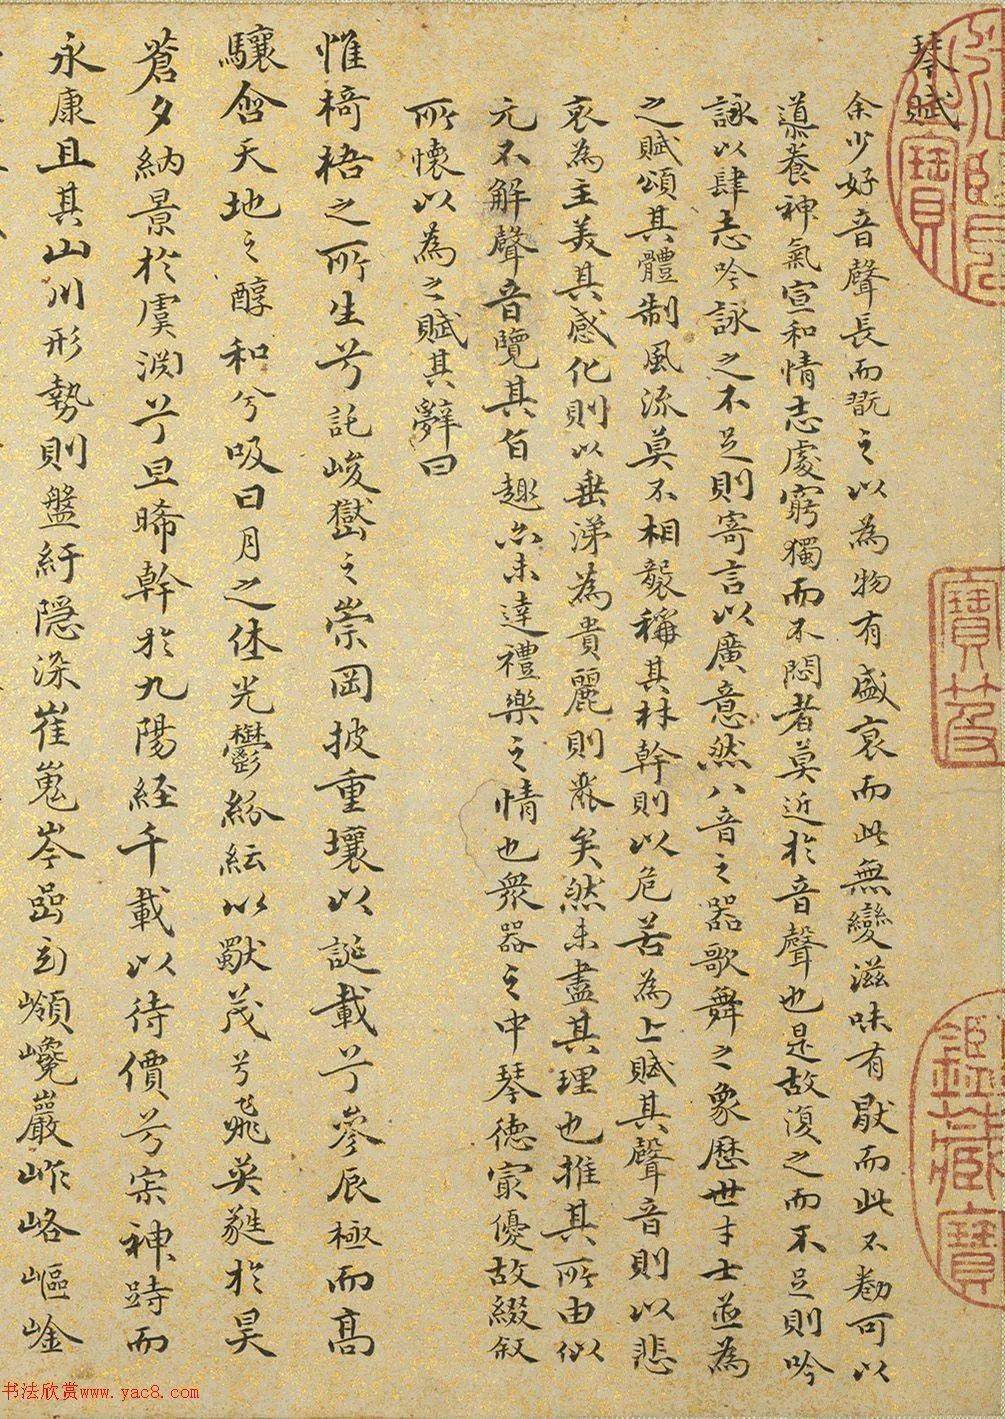 琴賦
余少好音聲長而翫之以為物有盛衰而此無變滋味有厭而此不勌可以
導養神氣宣和情志處窮獨而不悶者莫近於音聲也是故復之而不足則吟
詠以肆志吟詠之不足則寄言以廣意然八音之器歌舞之象歷世才士並為
之賦頌其體制風流莫不相襲稱其材幹則以危苦為上賦其聲音則以悲
哀為主美其感化則以垂涕為貴麗則麗矣然未盡其理也推其所由似
元不解聲音覽其旨趣亦未達禮樂之情也眾器之中琴德最優故綴敘
所懷以為之賦其辭曰
惟椅梧之所生兮託峻嶽之崇岡披重壤以誕載兮參辰極而高
驤含天地之醇和兮吸日月之休光鬱紛紜以獸茂兮飛英蕤於昊
蒼夕納景於虞淵兮旦晞幹於九陽經千載以待價兮寂神跱而
永康且其山川形勢則盤紆隱深崔嵬岑嵒玄嶺巉巖岞峉嶇崟
寶笈
鑑藏寶
书法欣赏www.yac8.com